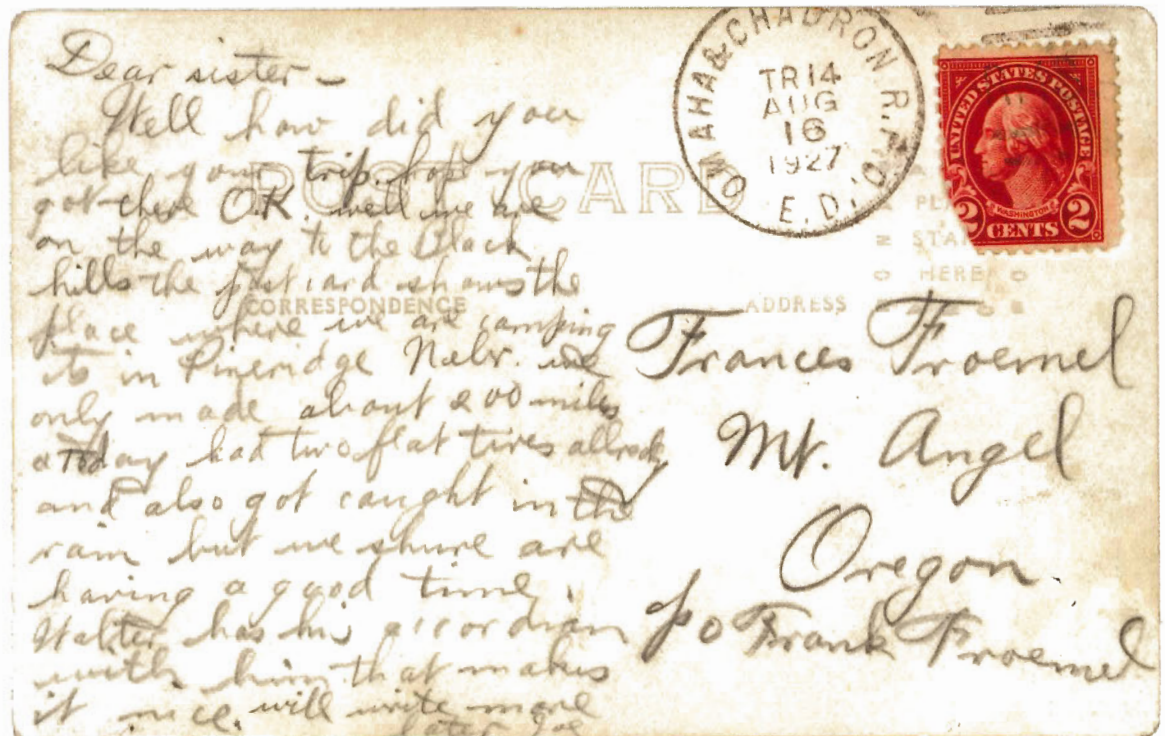 Dear sister —
Well how did you
like your trip. hop you
got there O.K. well we are
on the way to the Black
hills the post card shows the
place where we are camping
its in Pineridge Nebr. we
only made about 200 miles
a day had two flat tires allready
and also got caught in the
rain but we shure are
having a good time.
Walter has his accordian
with him that makes
it nice. will write more
later Joe
POST CARD
CORRESPONDENCE
ADDRESS
OMAHA & CHADRON R.P.O.
TR 14
AUG
16
1927
E.D.
UNITED STATES POSTAGE
WASHINGTON
2 CENTS 2
HERE
Frances Froemel
Mt. Angel
Oregon.
c/o Frank Froemel